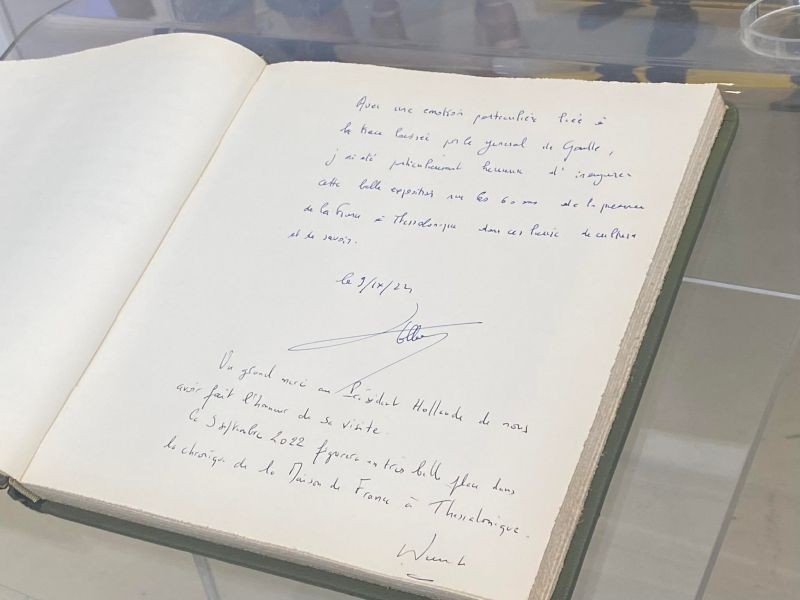 Avec une émotion particulière liée à
la trace laissée par le général de Gaulle,
j'ai été particulièrement heureux d'inaugurer
cette belle exposition sur les 60 ans de la présence
de la France à Thessalonique dans ces lieux de culture
et de savoir.
le 9/IX/22
Un grand merci au Président Hollande de nous
avoir fait l'honneur de sa visite.
Le 9 septembre 2022 figurera en très belle place dans
la chronique de la Maison de France à Thessalonique.